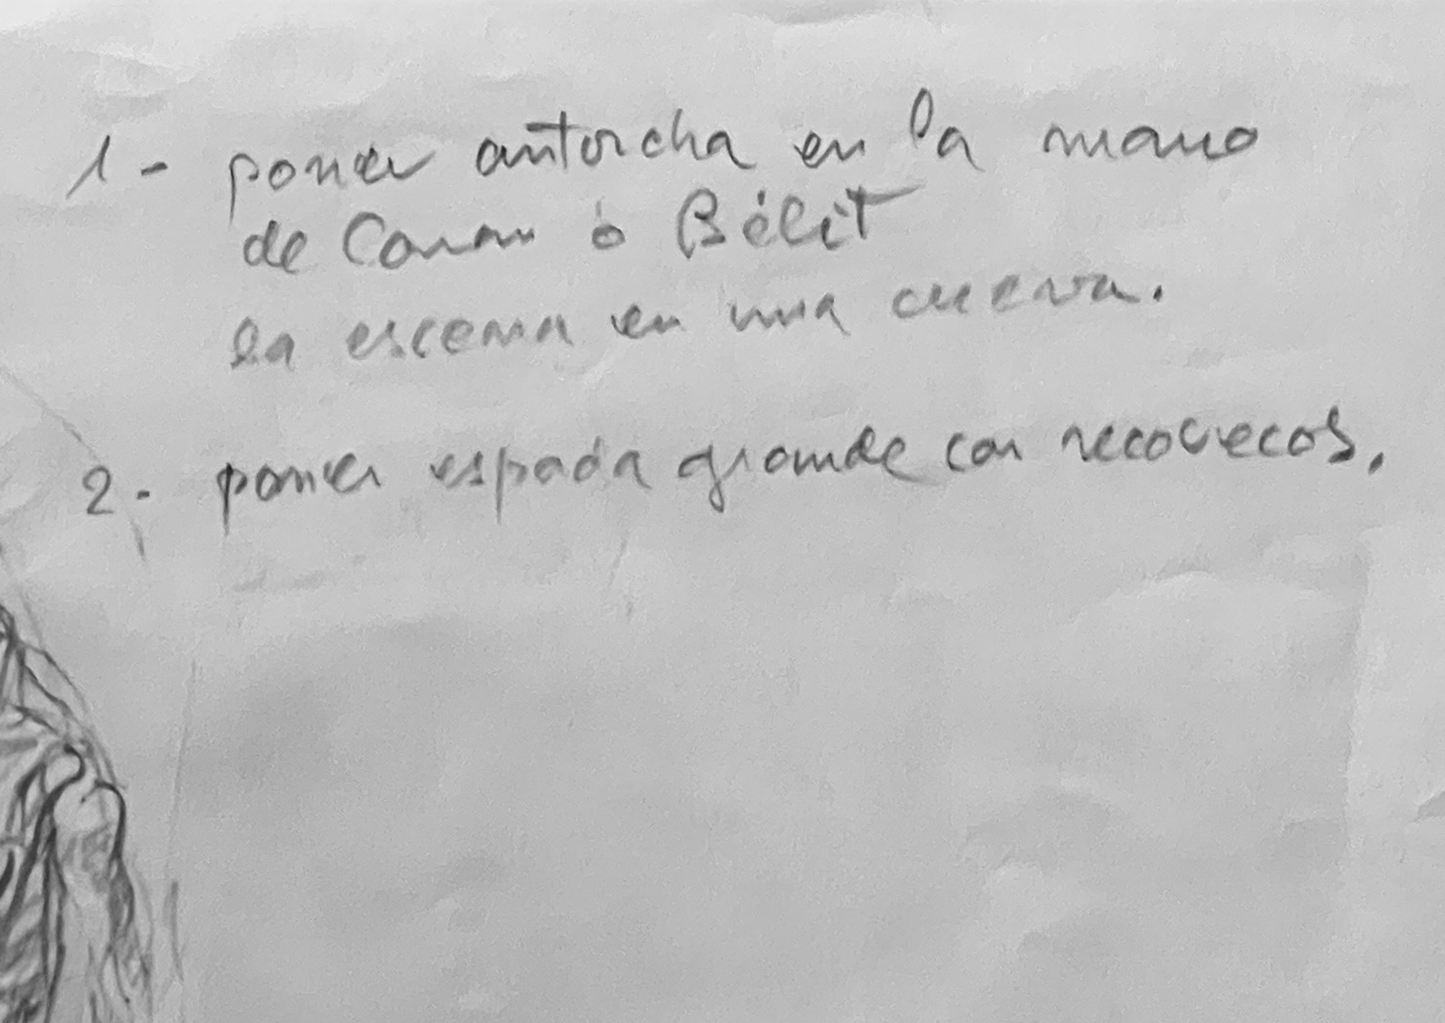 1- poner antorcha en la mano
de Conan ó Bélit
la escena en una cueva.
2- poner espada grande con recovecos.